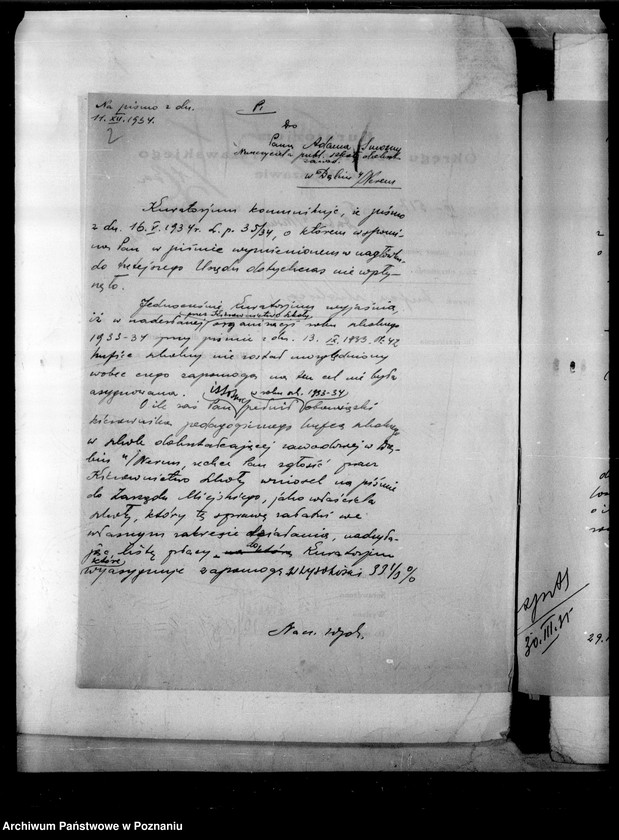 Na pismo z dn.
11.XII.1934.
2
P.
Do
Pana Adama
nauczyciela publ. szkoły dokszt.
zawod.
w Dębiu n/Nerem
Kuratorjum komunikuje, iż pismo
z dn. 16.V.1934 r. L.p. 35/34, o którem wspomi-
na Pan w piśmie wymienionem w nagłówku,
do tutejszego Urzędu dotychczas nie wpły-
nęło.
Jednocześnie Kuratorjum wyjaśnia,
przez Kierownictwo szkoły
iż w nadesłanej organizacji roku szkolnego
1933-34 przy piśmie z dn. 13. IX.1933. 42
hufiec szkolny nie został uwzględniony
wobec czego zapomoga na ten cel nie była
asygnowana.
istotnie w roku szk. 1933-34
O ile zaś Pan pełnił obowiązki
kierownika pedagogicznego hufca szkolnego
w szkole dokształcającej zawodowej w Dę-
biu n/Nerem, zechce Pan zgłosić przez
Kierownictwo szkoły wniosek na piśmie
do Zarządu Miejskiego, jako właściciela
szkoły, który tę sprawę załatwi we
własnym zakresie działania, nadsyła-
jąc listę płacy do Kuratorjum
które
wyasygnuje zapomogę w wysokości 33 1/3 %
Nacz. Wydz.
30.III.35
29.